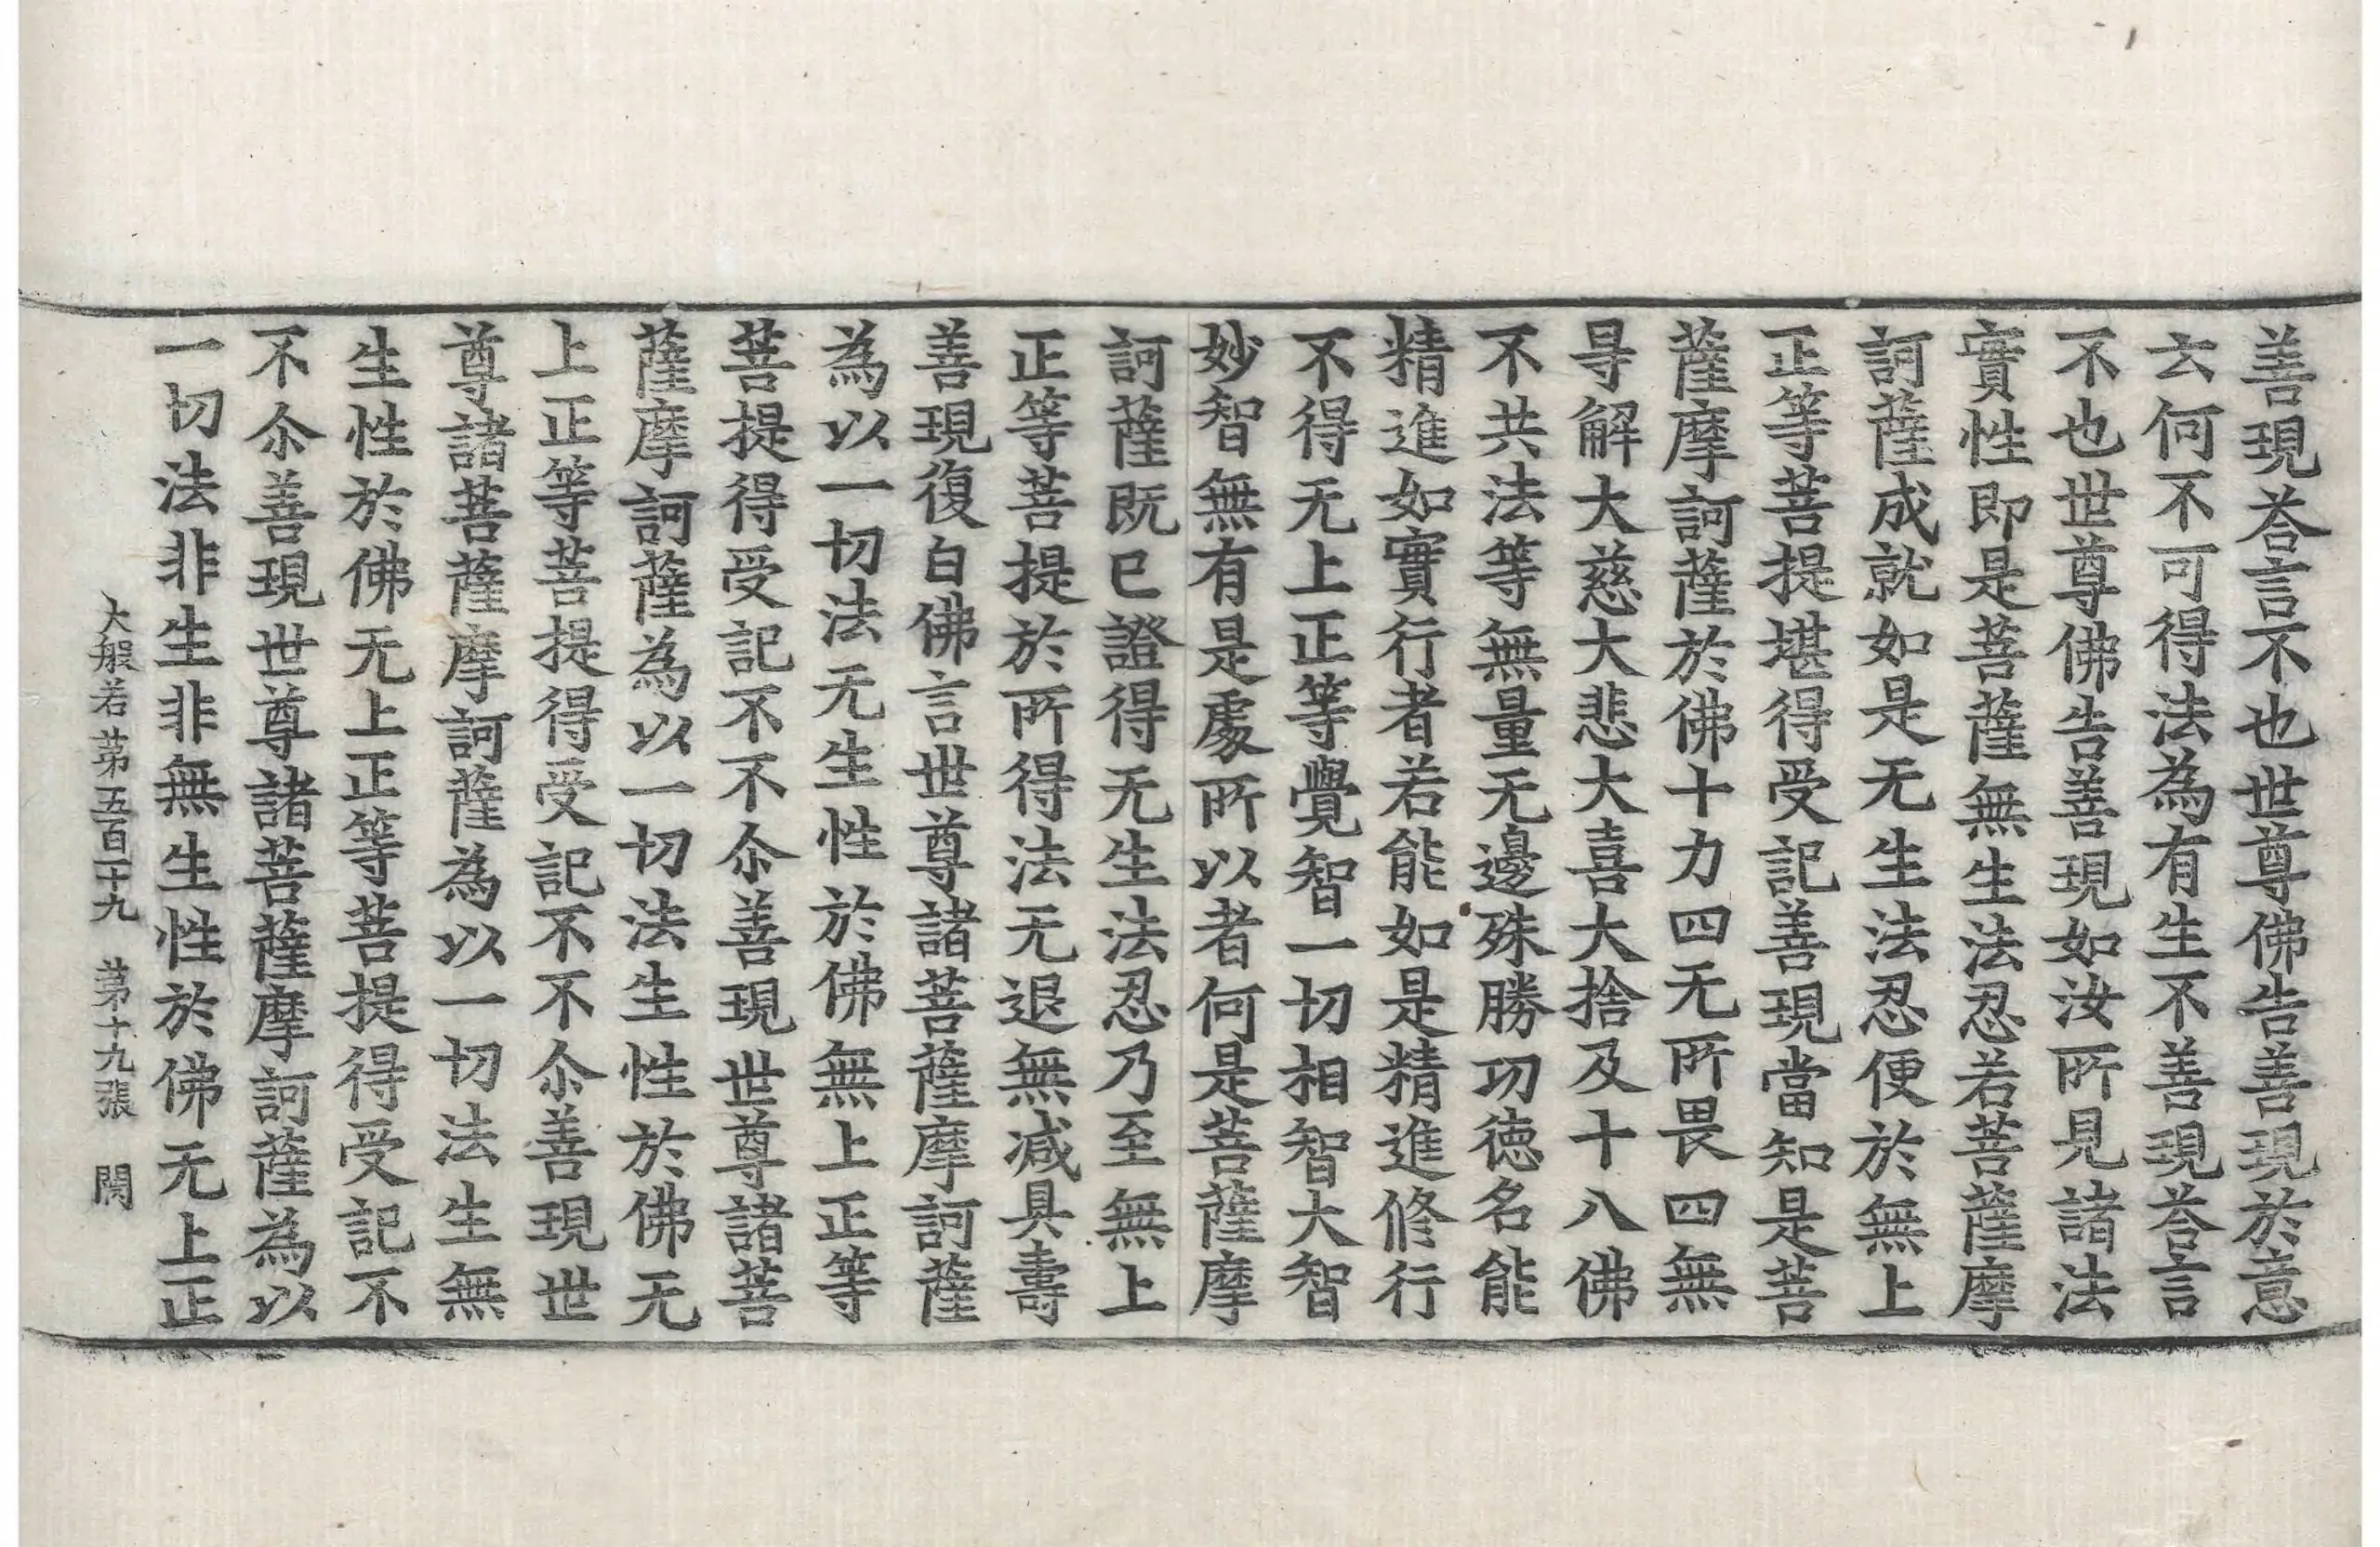 善現荅言不也世尊佛告善現於意
云何不可得法為有生不善現荅言
不也世尊佛告善現如汝所見諸法
實性即是菩薩無生法忍若菩薩摩
訶薩成就如是无生法忍便於無上
正等菩提堪得受記善現當知是菩
薩摩訶薩於佛十力四无所畏四無
㝵解大慈大悲大喜大捨及十八佛
不共法等無量无邊殊勝功徳名能
精進如實行者若能如是精進修行
不得无上正等覺智一切相智大智
妙智無有是處所以者何是菩薩摩
訶薩既已證得无生法忍乃至無上
正等菩提於所得法无退無減具壽
善現復白佛言世尊諸菩薩摩訶薩
為以一切法无生性於佛無上正等
菩提得受記不不尒善現世尊諸菩
薩摩訶薩為以一切法生性於佛无
上正等菩提得受記不不尒善現世
尊諸菩薩摩訶薩為以一切法生無
生性於佛无上正等菩提得受記不
不尒善現世尊諸菩薩摩訶薩為以
一切法非生非無生性於佛无上正
大般若第五百二十九 第十九張 閏